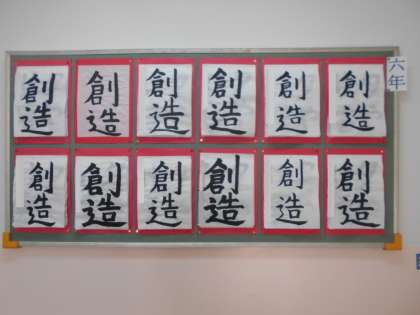 六年
創造
創造
創造
創造
創造
創造
創造
創造
創造
創造
創造
創造